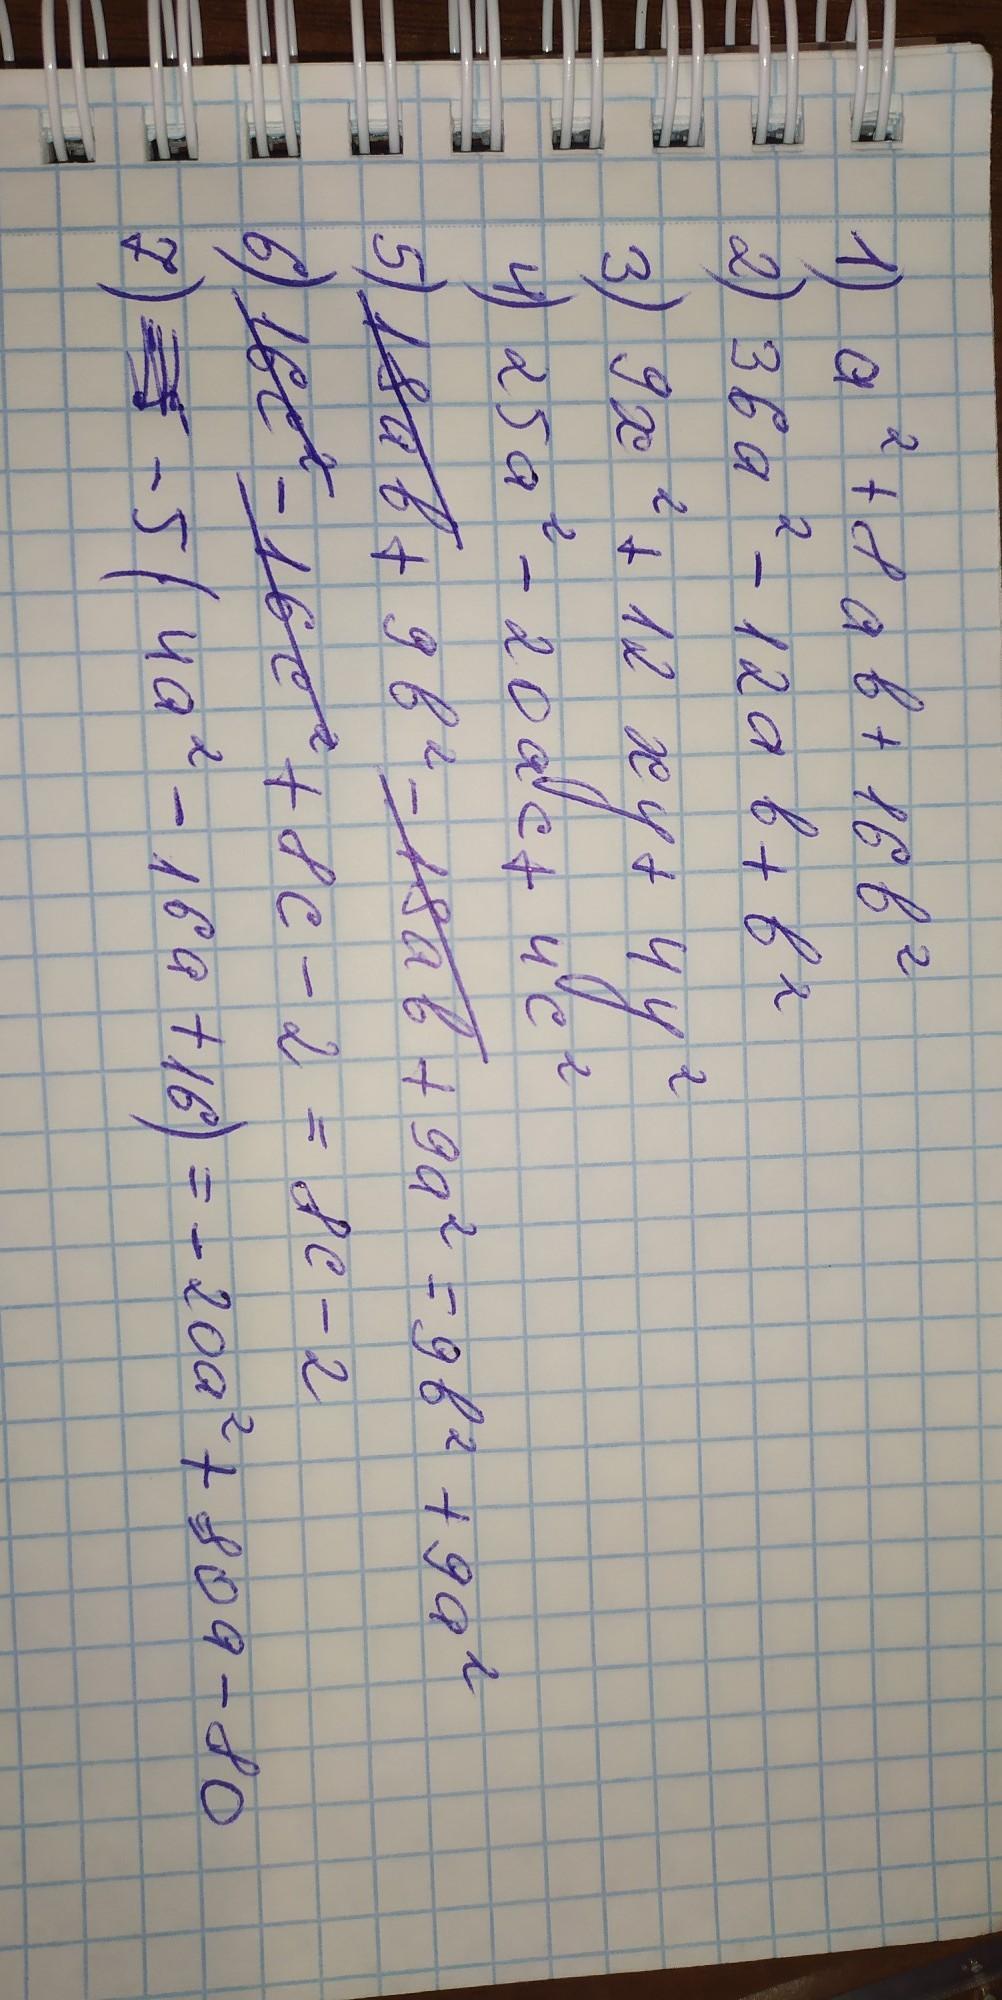 1) a² + 8ab + 16b²
2) 36a² - 12ab + b²
3) 9x² + 12xy + 4y²
4) 25a² - 20ayc + 4yc²
5) 18ab + 9b² - 18ab + 9a² = 9b² + 9a²
6) 16c² - 16c² + 8c - 2 = 8c - 2
7) - 5(4a² - 16a + 16) = - 20a² + 80a - 80